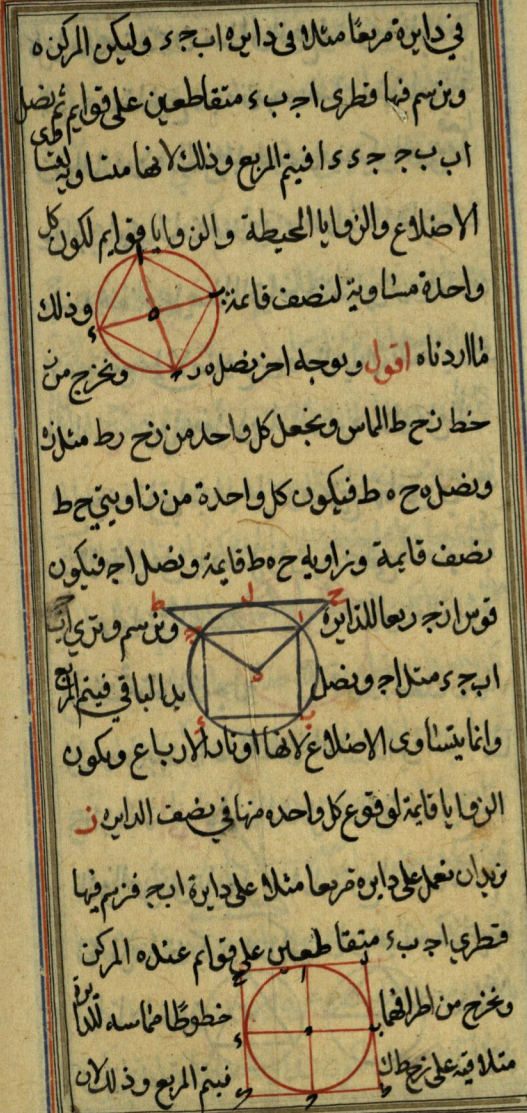 في دايرة مربعا مثلا في دايرة ا ب ج ء وليكن المركز ه
ونرسم فيها قطرى ا ج ب ء متقاطعين على قوايم ثم نصل
ا ب ب ج ج ء ء ا فيتم المربع وذلك لانها متساوية
الاضلاع والزوايا المحيطة والزوايا قوايم لكون كل
واحدة مساوية لنصف قائمة وذلك
ما اردناه اقول وبوجه اخر نصل ه ر ونخرج من ر
خط رح ط المماس ونجعل كل واحد من رح رط مثل ره
ونصل ه ح ه ط فيكون كل واحدة من زاويتي ح ط
نصف قايمة وزاوية ح ه ط قايمة ونصل ا ج فيكون
قوس ا ر ج ربعا للدايرة ونرسم وترى ا ب
ج ء مثل ا ج ونصل ب ء الباقي فيتم المربع
وانما يتساوى الاضلاع لانها اوتار الارباع ويكون
الزوايا قايمة لوقوع كل واحدة منها في نصف الدايرة ز
نريد ان نعمل على دايرة مربعا مثلا على دايرة ا ب ج فنرسم فيها
قطري ا ج ب ء متقاطعين على قوايم عند ه المركز
ونخرج من اطرافهما خطوطا مماسه للدايرة
متلاقية على زح ط ك فيتم المربع وذلك لان